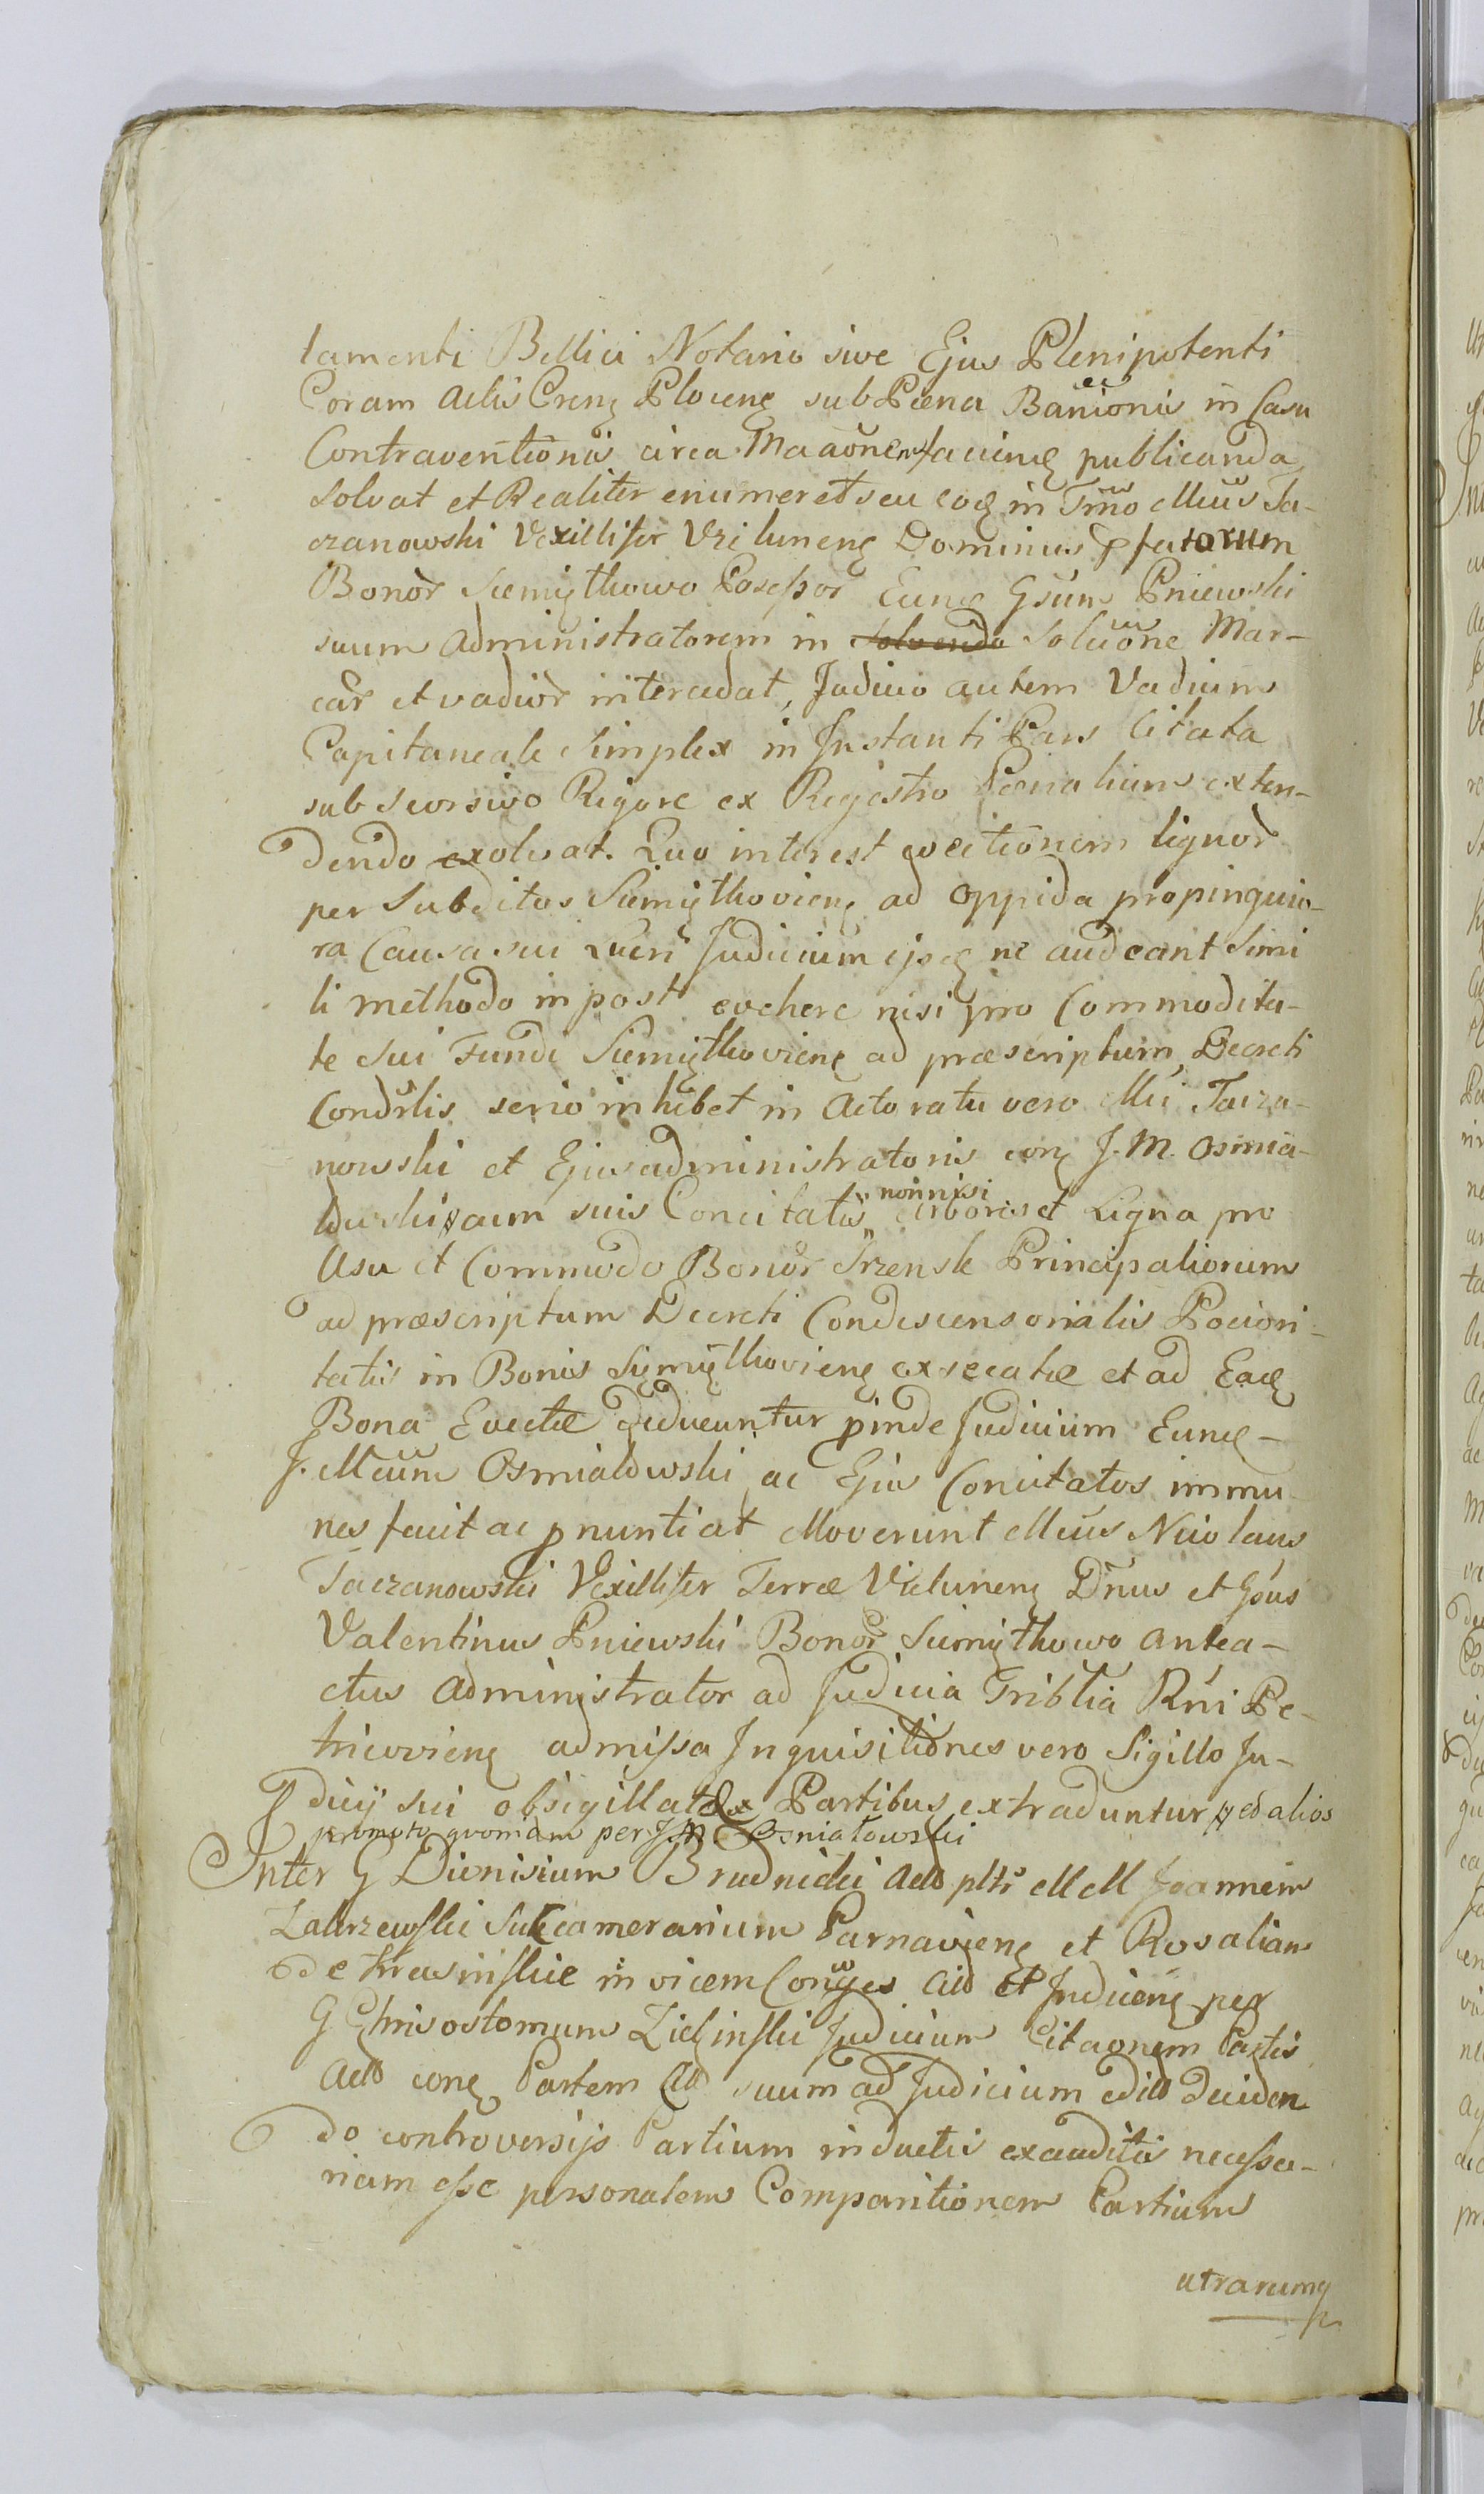 tamenti Bellici Notario sive Ejus Plenipotenti
Coram Actis Crens Plocens sub Pœna Banĩonis in Casu
Contraventionis circa faciens publicanda
solvat et Realiter enumeret seu eoq in Tmno Mcus Ta-
czanowski Vexillifer Vielunens Dominus pfatorum
Bonor Siemięthowo Possessor Eunq Gsum Pniewski
suum Administratorem in solvenda Solũone Mar-
car et vadior intercedat, Judicio autem Vadium
Capitaneale Simplex in Instanti Pars Citata
sub seorsivo Rigore ex Regestro Pœnalium exten-
dendo exolvat. Quo interest evectionem lignor
per Subditos Siemięthoviens ad Oppida propinquio-
ra Causa sui Lucri Judicium ijsq ne audeant Simi
li methodo inpost evehere nisi pro Commodita-
te Sui Fundi Siemięthoviens ad præscriptum Decreti
Condrlis serio inhibet in Actoratu vero Mci Tacza-
nowski et Ejus administratoris cons J. M. Osmia-
łowski aum suis Concitatis nonnisi Arbores et Ligna pro
Usu et Commodo Bonor Trzensk Principaliorum
ad præscriptum Decreti Condescensorialis Pociori-
tatis in Bonis Sięmięthoviens exsecatæ et ad Eaq
Bona Evectæ deducuntur pinde Judicium Eunq-
J. Mcum Osmialowski ac Ejus Concitatos immu-
nes facit ac pnuntiat Moverunt Mcus Nicolaus
Taczanowski Vexillifer Terræ Vielunens Dnus et Gsus
Valentinus Pniewski Bonor Siemięthowo antea-
ctus Administrator ad Judicia Triblia Rni Pe-
tricoviens admissa Inquisitiones vero Sigillo Ju-
dicij sui obsigillatæ Partibus extraduntur ed alios
promoto quoniam per J M Osmiałowski
Inter G Dionisium Brudnicki Act plts MM Joannem
Zakrzewski Subcamerarium Parnaviens et Rosaliam
de Krasinskie invicem Conjges Citt et Indicens per
G Chrisostomum Zielinski Judicium Citaonem Partis
Act cons Partem Citt suum ad Judicium edit deciden
do controversijs Partium inductis exauditis necessa-
riam esse personalem Comparitionem Partium
utrarumq